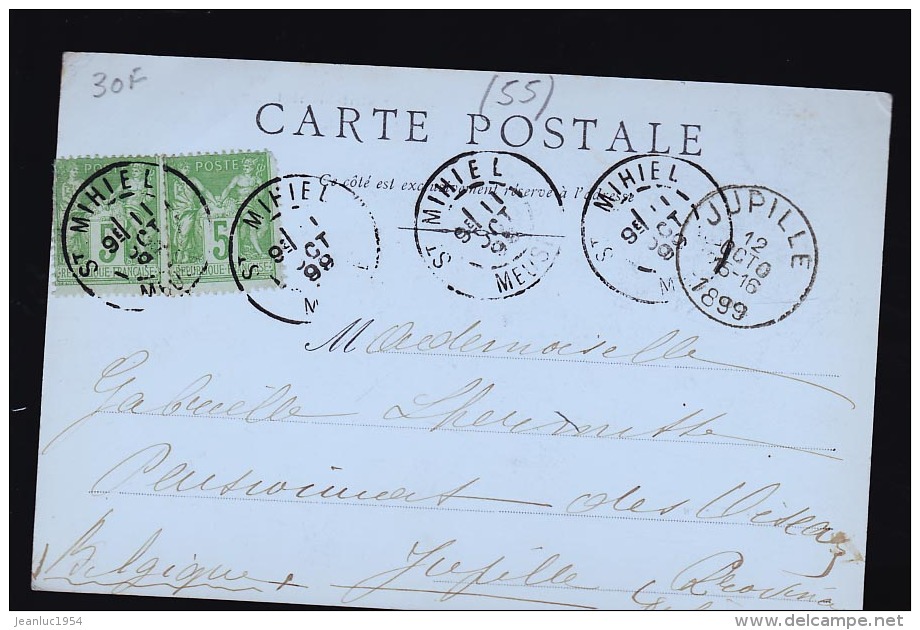 30F
(55)
CARTE POSTALE
Ce côté est exclusivement réservé à l'adresse
POSTE
5
POSTE
5
REPUBLIQUE FRANÇAISE
ST MIHIEL
9E 11
OCT
99
MEUSE
ST MIHIEL
9E 11
OCT
99
ST MIHIEL
9E 11
OCT
99
MEUSE
ST MIHIEL
9E 11
OCT
99
JUPILLE
12
OCTO
15-16
1899
Mademoiselle
Gabrielle Lhermitte
Pensionnat des Oiseaux
Belgique. Jupille Province
jeanluc1954
www.delcampe.net